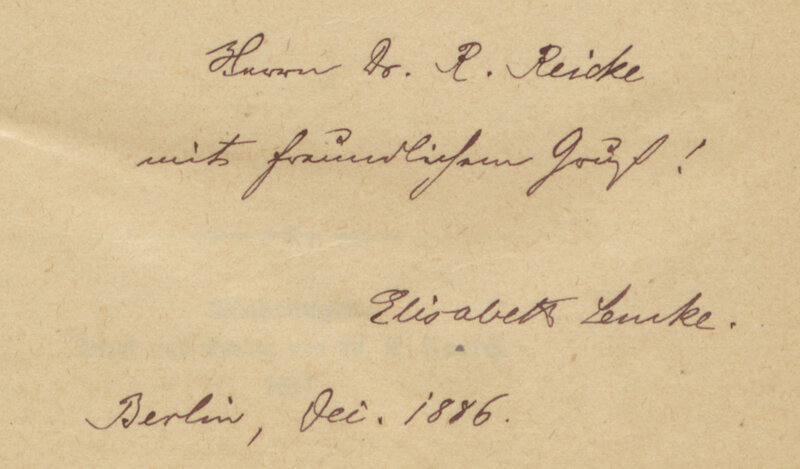 Herrn Dr. R. Reicke
mit freundlichem Gruß!
Elisabeth Lemke.
Berlin, Dei. 1886.